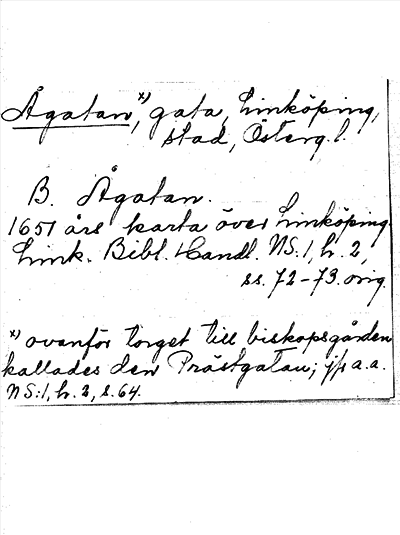 Ågatan,ˣ⁾ gata, Linköping,
stad, Österg. l.
B. Ågatan.
1651 års karta över Linköping.
Link. Bibl. Handl. NS:1, h. 2,
ss. 72-73. orig.
ˣ⁾ ovanför torget till biskopsgården
kallades den Prästgatan; jfr a.a.
NS:1, h. 2, s. 64.